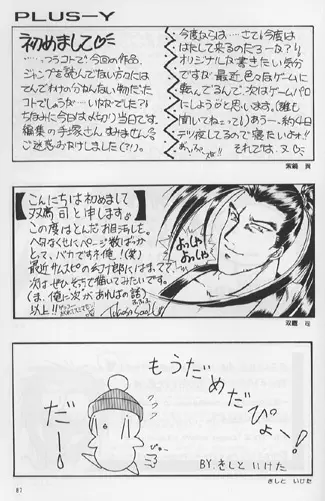 PLUS-Y
初めまして♡
…………つうコトで、今回の作品、
ジャンプを読んでない方々には
てんでわけの分かんない物だった
コトでしょうな…いかがでした?!
ちなみに今日は〆切り当日です。
編集の手塚さん、すみません
ご迷惑おかけしました(?!)。
今度ならは……さて!今度は
はたして来るのだろーな?!
オリジナルな書きたい気分
ですが最近、色々なゲームに
転んでるんで、次はゲームパロ
にしようかと思います。(誰も
聞いてねぇって!)あうー、約4日
テツ夜してるので寝たいよォ!!
それでは、又♡
【こんにちは初めまして
双鷹 司と申します。】
この度はとんだお目汚しを。
ヘタなくせにページ数ばっか
とって、バカですネ俺!(笑)
最近サムスピの幻十郎にはまってて、
次はぜひそっちで描いてみたいです。
(ま、俺に次があればの話)
以上!!
おっしゃ
おっしゃ
双鷹 司
もうだめだぴょー!
だー!
BY.きしと いけた
きしと いけた
87